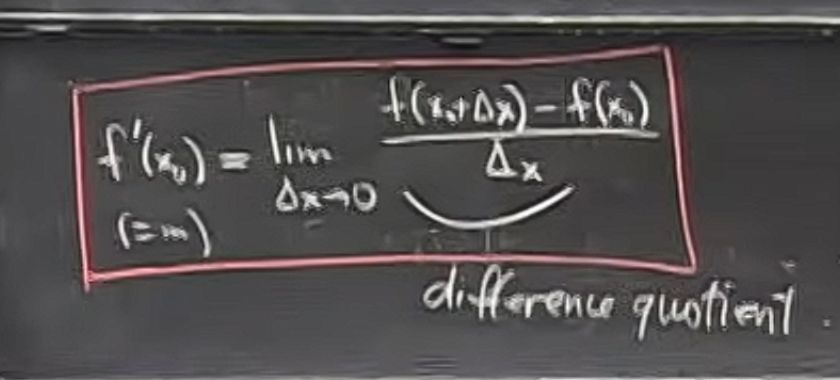 f'(x₀) = lim Δx→0 f(x₀+Δx) − f(x₀) / Δx
(=m)
difference quotient.